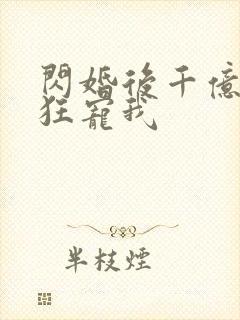 閃婚後千億
狂寵我
半枝煙